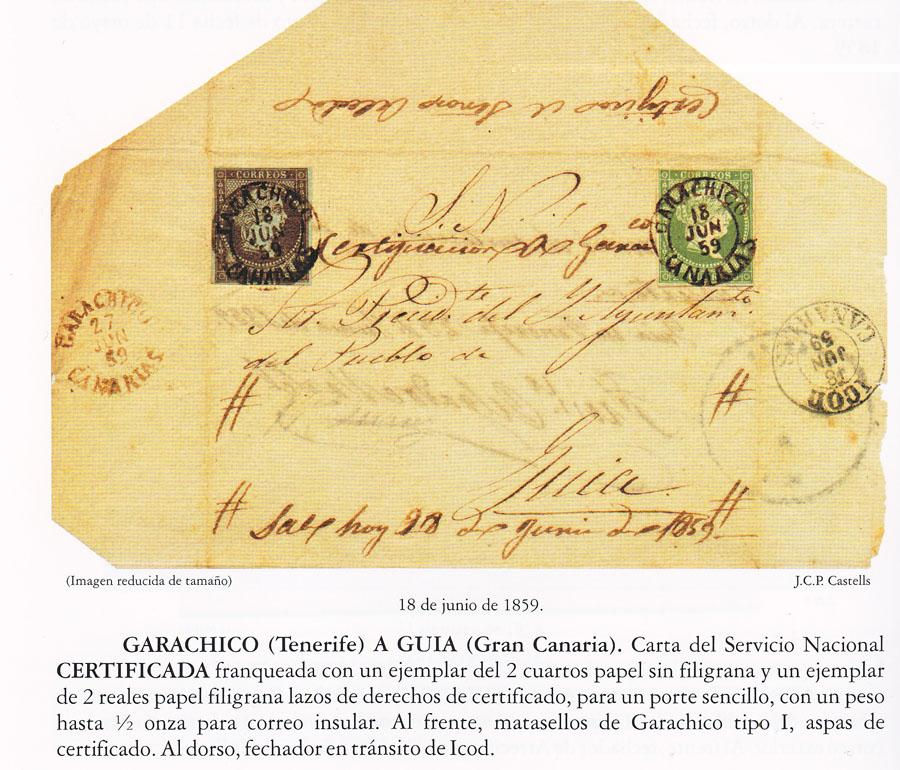 CORREOS
GARACHICO
18
JUN
59
CANARIAS
CORREOS
GARACHICO
18
JUN
59
CANARIAS
S. N.
Certificacion de Garaco
Sor. Presidte. del Y. Ayuntamto.
del Pueblo de
Guia.
Sale hoy 28 de Junio de 1859
GARACHICO
27
JUN
59
CANARIAS
ICOD
18
JUN
59
CANARIAS
(Imagen reducida de tamaño)
J.C.P. Castells
18 de junio de 1859.
GARACHICO (Tenerife) A GUIA (Gran Canaria). Carta del Servicio Nacional
CERTIFICADA franqueada con un ejemplar del 2 cuartos papel sin filigrana y un ejemplar
de 2 reales papel filigrana lazos de derechos de certificado, para un porte sencillo, con un peso
hasta ½ onza para correo insular. Al frente, matasellos de Garachico tipo I, aspas de
certificado. Al dorso, fechador en tránsito de Icod.